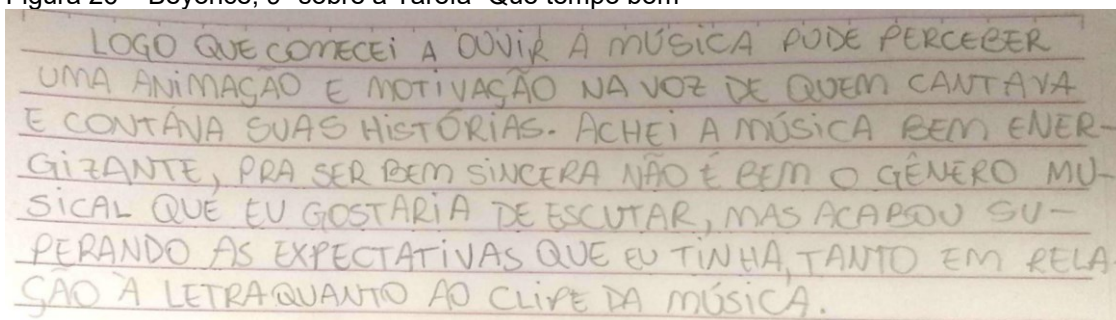 LOGO QUE COMECEI A OUVIR A MÚSICA PUDE PERCEBER
UMA ANIMAÇÃO E MOTIVAÇÃO NA VOZ DE QUEM CANTAVA
E CONTAVA SUAS HISTÓRIAS. ACHEI A MÚSICA BEM ENER-
GIZANTE, PRA SER BEM SINCERA NÃO É BEM O GÊNERO MU-
SICAL QUE EU GOSTARIA DE ESCUTAR, MAS ACABOU SU-
PERANDO AS EXPECTATIVAS QUE EU TINHA, TANTO EM RELA
ÇÃO À LETRA QUANTO AO CLIPE DA MÚSICA.